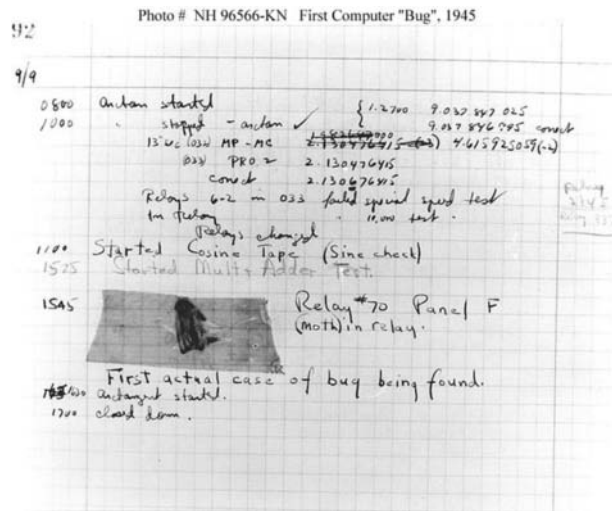 Photo # NH 96566-KN First Computer "Bug", 1945
92
9/9
0800 antan started { 1.2700 9.037 847 025
1000 " stopped - antan ✓ 9.037 846 795 conect
13"uc (032) MP - MC 2.130476415 (-3) 4.615925059(-2)
(033) PRO 2 2.130476415
conect 2.130676415
Relays 6-2 in 033 failed special speed test
In Relay " 10,000 test.
Relay
2145
Relays changed
1100 Started Cosine Tape (Sine check)
1525 Started Mult+ Adder Test.
1545 Relay #70 Panel F
(moth) in relay.
First actual case of bug being found.
1630 antangent started.
1700 closed down.